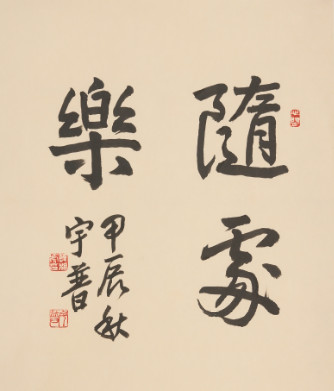 隨處
樂
甲辰秋
宇普